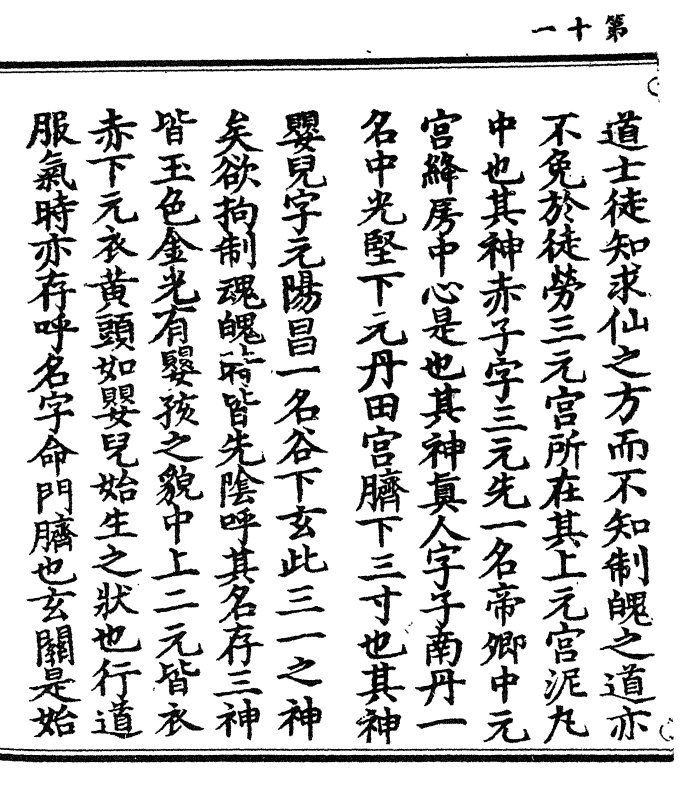 第十一
道士徒知求仙之方而不知制魄之道亦
不免於徒勞三元宮所在其上元宮泥丸
中也其神赤子字三元先一名帝卿中元
宮絳房中心是也其神眞人字子南丹一
名中光堅下元丹田宮臍下三寸也其神
嬰兒字元陽昌一名谷下玄此三一之神
矣欲拘制魂魄時皆先陰呼其名存三神
皆玉色金光有嬰孩之貌中上二元皆衣
赤下元衣黄頭如嬰兒始生之狀也行道
服氣時亦存呼名字命門臍也玄關是始